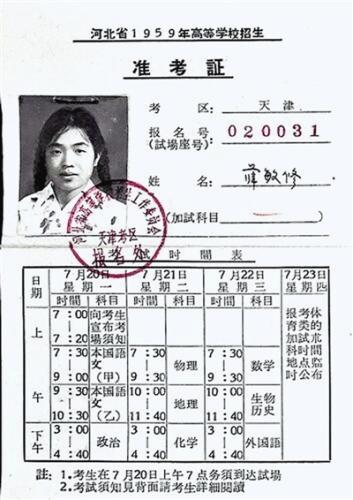 河北省1959年高等学校招生
准考証
考 区: 天津
报名号
(試場座号): 020031
姓名: 薛敏修
(加試科目)
天津考区
报名处
試時間表
日期 7月20日 星期一 7月21日 星期二 7月22日 星期三 7月23日 星期四
時間 科目 時間 科目 時間 科目
上午 7:00 7:20 向考生宣布考場須知
7:30 9:00 本国語文(甲) 7:30 9:30 物理 7:30 9:30 数学
9:30 11:30 本国語文(乙) 10:00 11:40 地理 10:00 11:40 生物 历史
下午 3:00 4:40 政治 3:00 4:40 化学 3:00 4:40 外国語
报考体育类的加試术科時間地点临时公布
註:1.考生在7月20日上午7点务須到达試場
2.考試須知見背面請考生詳細閱讀